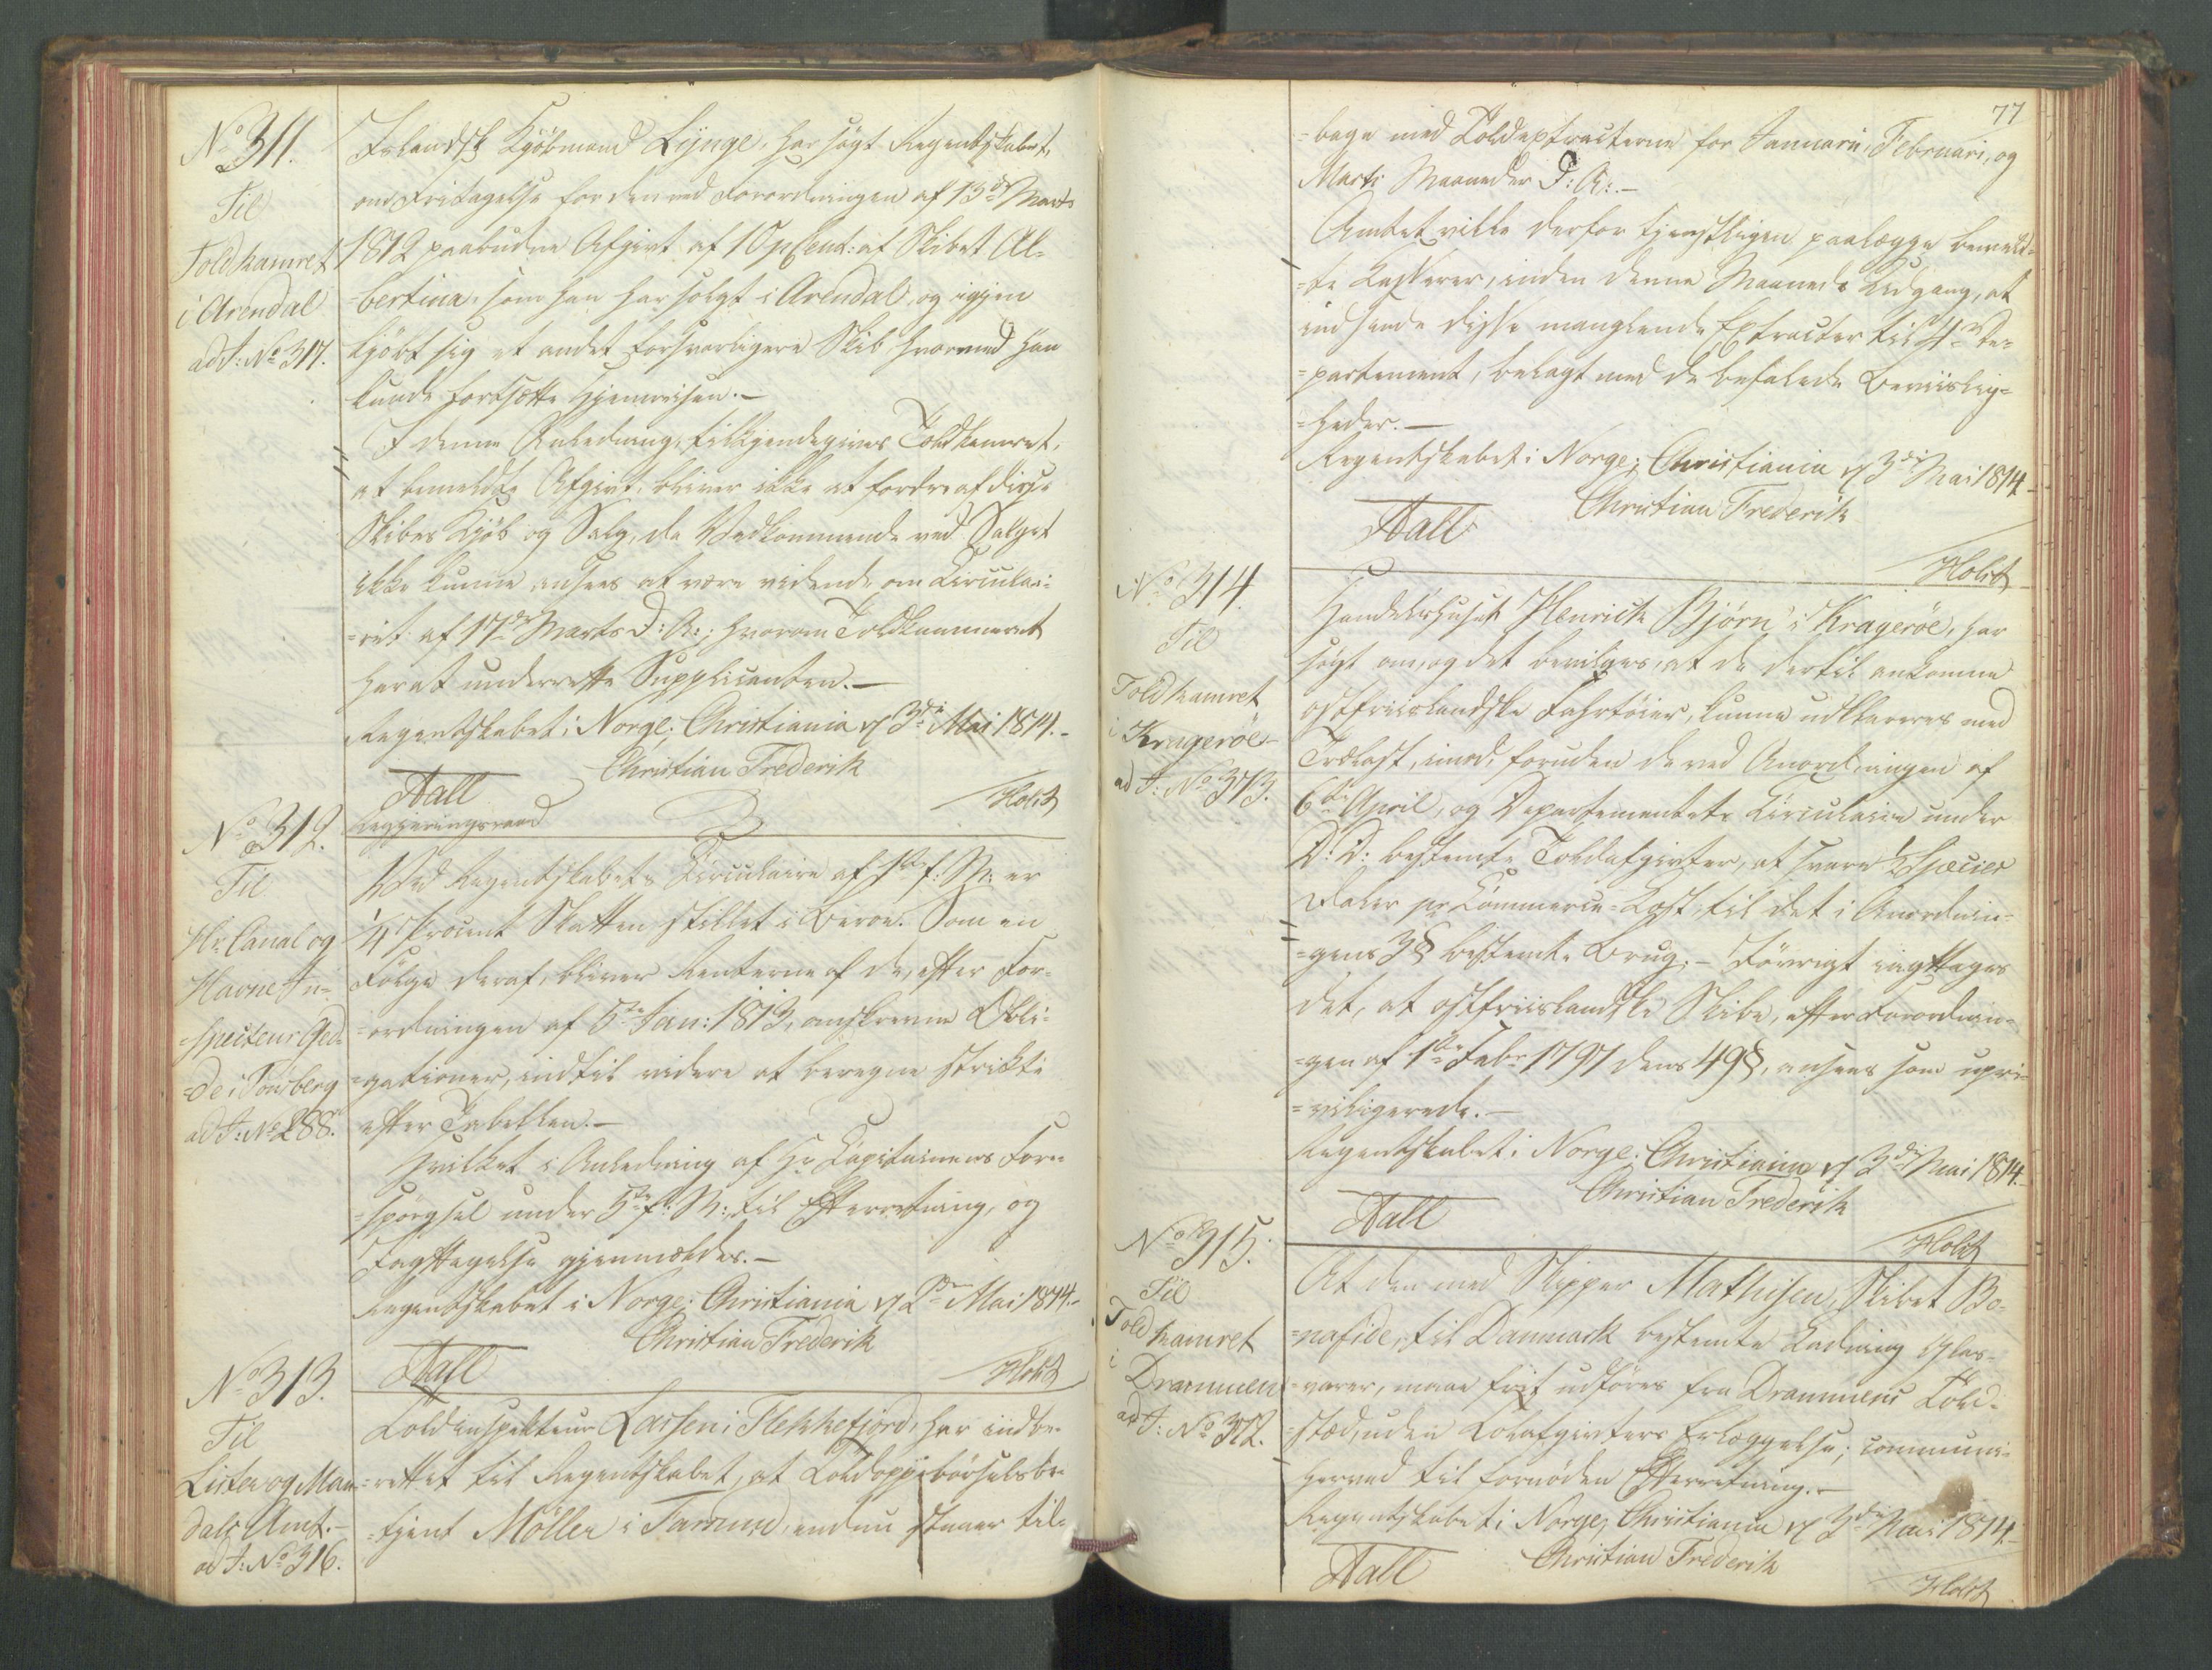 No 311.
Til
Toldkamret
i Arendal
ad J: No 317.
Islandsk Kjöbmand Lynge, har søgt Regentskabet,
om Fritagelse for den ved Forordningen af 13de Marts
1812 paabudne Afgivt af 10 pCent: af Skibet Al-
=bertina, som han har solgt i Arendal, og igjen
kjöbt sig et andet forsvarligere Skib hvormed han
kunde fortsætte Hjemreisen.-
I denne Anledning, tilkjendegives Toldkamret,
at bemeldte Afgivt, bliver ikke at fordre af disse
Skibes Kjöb og Salg, da Vedkommende ved Salget
ikke kunne ansees at være vidende om Circulai-
=ret af 17de Marts D: A:, hvorom Toldkammeret
har at underrette Supplicanten.-
Regentskabet i Norge; Christiania d 3die Mai 1814.-
Christian Frederik
Aall
Regjeringsraad
Holst
No 312.
Til
Hr. Canal og
Havne In-
=specteur Ged-
=de i Tønsberg
ad J: No 288.
Ved Regentskabets Circulaire af 1ste f: M: er
1/4 procent Skatten stillet i Beroe. Som en
Følge deraf, bliver Renterne af de, efter For-
=ordningen af 5te Jan: 1813, omskrevne Obli-
=gationer, indtil videre at beregne strikte
efter Tabellen.-
Hvilket i Anledning af Hr Capitainens Fore-
=spørgsel under 5te f: M:, til Efterretning, og
Iagttagelse gjenmeldes.-
Regentskabet i Norge; Christiania d 2den Mai 1814.-
Christian Frederik
Aall
Holst
No 313.
Til
Lister og Man-
dals Amt.-
ad J: No 316.
Toldinspekteur Lassen i Flekkefjord, har indbe-
=rettet til Regentskabet, at Toldoppebörselsbe-
=tjent Møller i Farsund, endnu staaer til-
77
=bage med Toldextracterne for Januari, Februari, og
Marti Maaneder D: A:.-
Amtet ville derfor tjenstligen paalægge bemeld-
=te Kasserer, inden denne Maaneds Udgang, at
indsende disse manglende Extracter til 4de De-
=partement, belagt med de befalede Beviislig-
=heder.-
Regentskabet i Norge; Christiania d 3die Mai 1814.-
Christian Frederik
Aall
Holst
No 314.
Til
Toldkamret
i Kragerøe-
ad J: No 313.
Handelshuset Henrich Bjørn i Kragerøe, har
søgt om, og det bevilges, at de dertil ankomne
ostfriislandske Fahrtøier, kunne udklareres med
Trælast, imod, foruden de ved Anordningen af
6te April, og Departementets Circulaire under
D: D: bestemte Toldafgivter, at svare 1/2 Species
Daler pr Commerce-Læst, til det i Anordnin-
=gens 3 § bestemte Brug.- Iøvrigt iagttages
det, at ostfriislandske Skibe, efter Forordnin-
=gen af 1ste Febr 1797 dens 49 §, ansees som upri-
=viligerede.-
Regentskabet i Norge. Christiania d 3die Mai 1814.-
Christian Frederik
Aall
Holst
No 315.
Til
Toldkamret
i
Drammen
ad J: No 312.
At den med Skipper Mathisen, Skibet Bo-
=nafide, til Danmark bestemte Ladning Glas-
=varer, maae frit udføres fra Drammens Told-
=sted, uden Toldafgivters Erlæggelse; communi-
herved til fornøden Efterretning.-
Regentskabet i Norge, Christiania d 3die Mai 1814.-
Christian Frederik
Aall
Holst